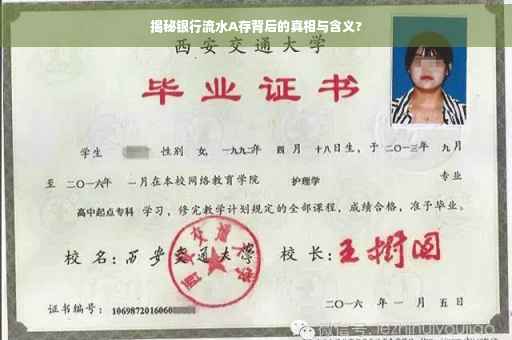 揭秘银行流水A存背后的真相与含义？
西安交通大学
毕业证书
学生 性别 女，一九九二年 四 月 十八日生，于 二〇一三年 九月
至 二〇一六年 一月在本校网络教育学院 护理学 专业
高中起点专科 学习，修完教学计划规定的全部课程，成绩合格，准予毕业。
校 名：西安交通大学 校 长：王树国
西安交通大学
证书编号：1069872016060
二〇一六 年 一 月 五 日
微信号:jezhinuiyoujiao